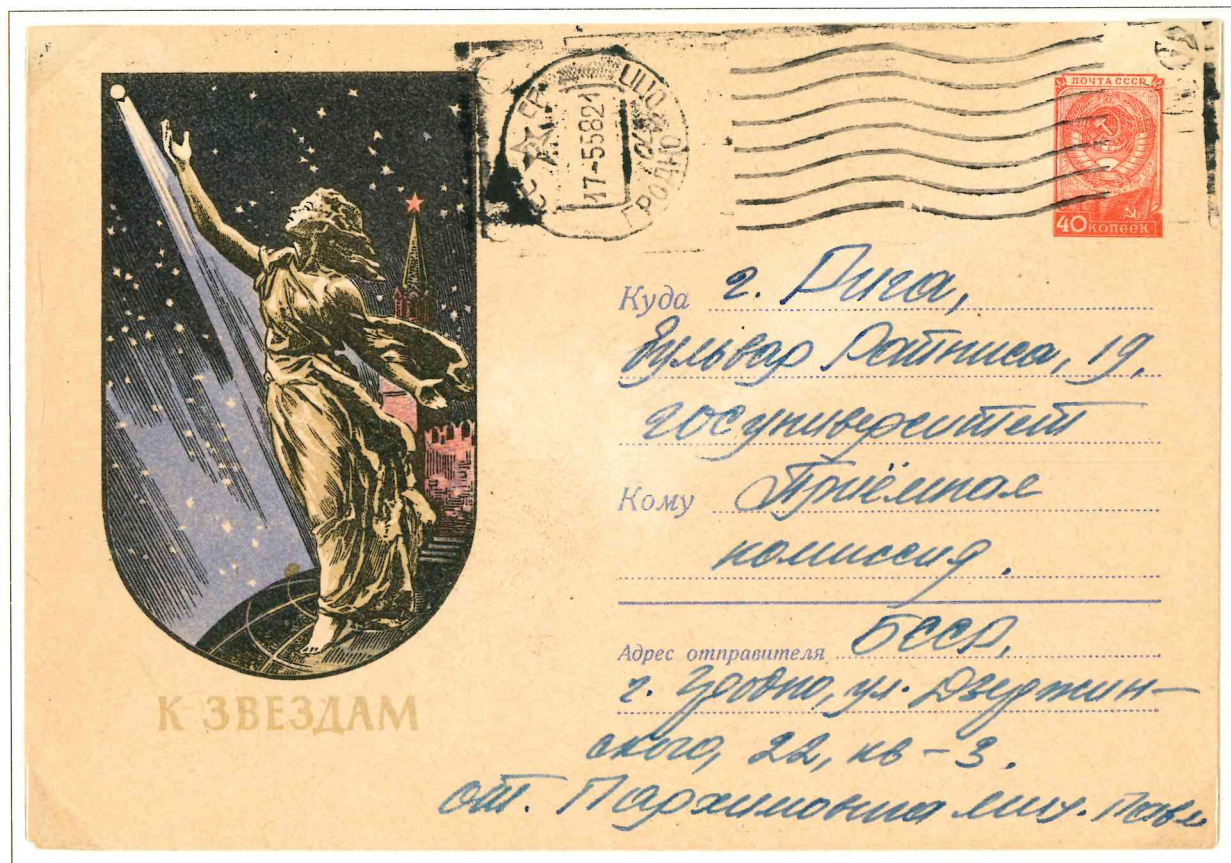 ПОЧТА СССР
40 КОПЕЕК
СССР
17-55821
ГРОДНО
Куда г. Рига,
бульвар Райниса, 19,
госуниверситет
Кому Приёмная
комиссия.
Адрес отправителя БССР,
г. Гродно, ул. Дзержин-
ского, 22, кв-3.
от. Пархимовича Мих.
К ЗВЕЗДАМ